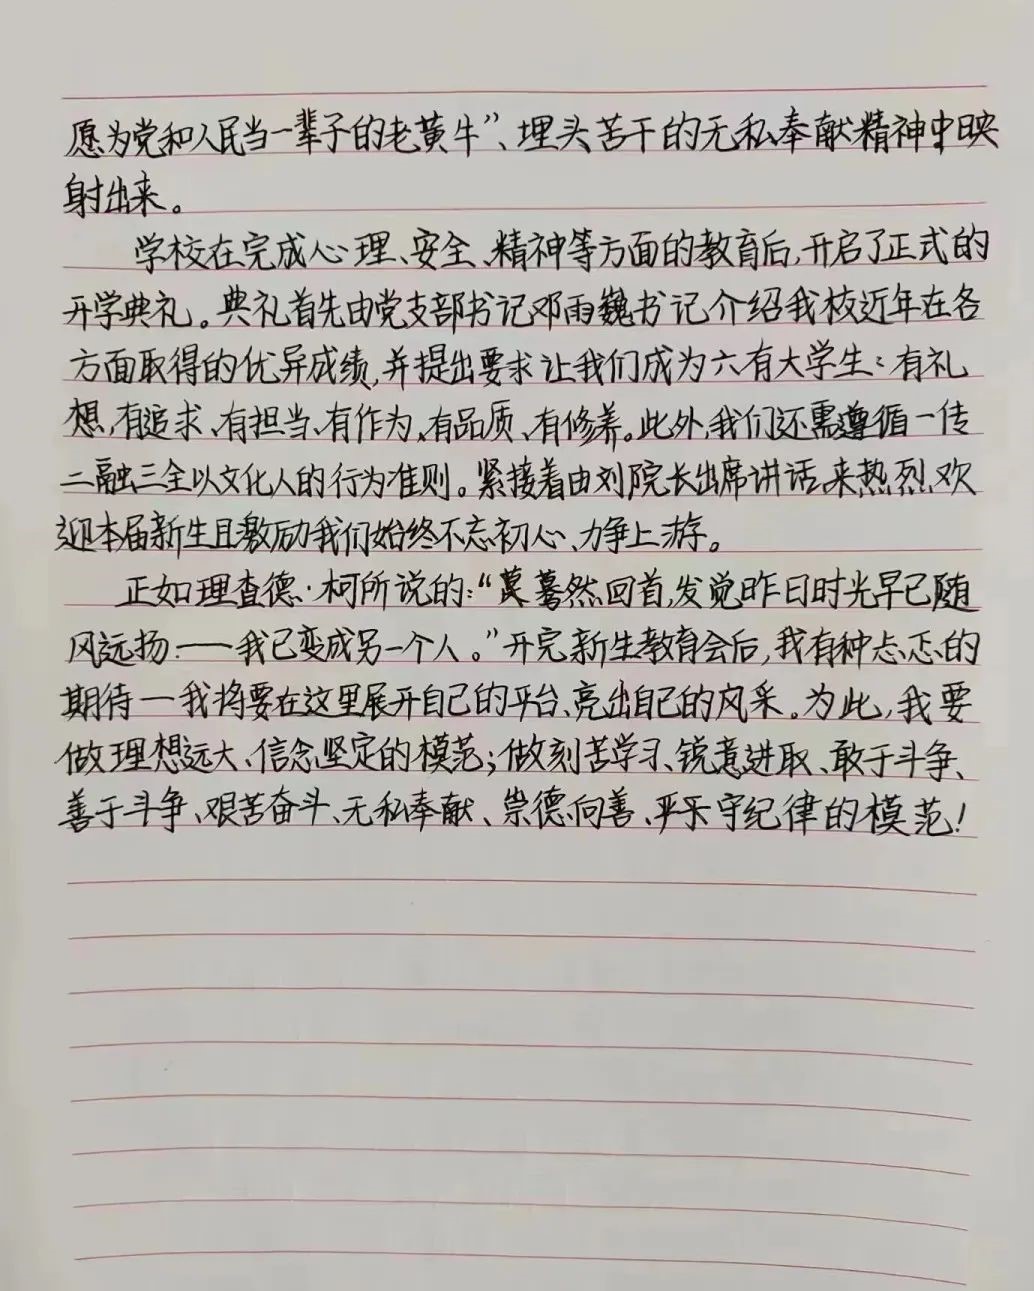 愿为党和人民当一辈子的老黄牛”、埋头苦干的无私奉献精神中映
射出来。
学校在完成心理、安全、精神等方面的教育后,开启了正式的
开学典礼。典礼首先由党支部书记邓雨巍书记介绍我校近年在各
方面取得的优异成绩,并提出要求让我们成为六有大学生:有礼
想,有追求、有担当、有作为、有品质、有修养。此外,我们还需遵循一传
二融三全以文化人的行为准则。紧接着由刘院长出席讲话,来热烈欢
迎本届新生且激励我们始终不忘初心、力争上游。
正如理查德·柯所说的:“蓦然回首,发觉昨日时光早已随
风远扬——我已变成另一个人。”开完新生教育会后,我有种忐忑的
期待—我将要在这里展开自己的平台、亮出自己的风采。为此,我要
做理想远大、信念坚定的模范;做刻苦学习、锐意进取、敢于斗争、
善于斗争、艰苦奋斗、无私奉献、崇德向善、严守纪律的模范!